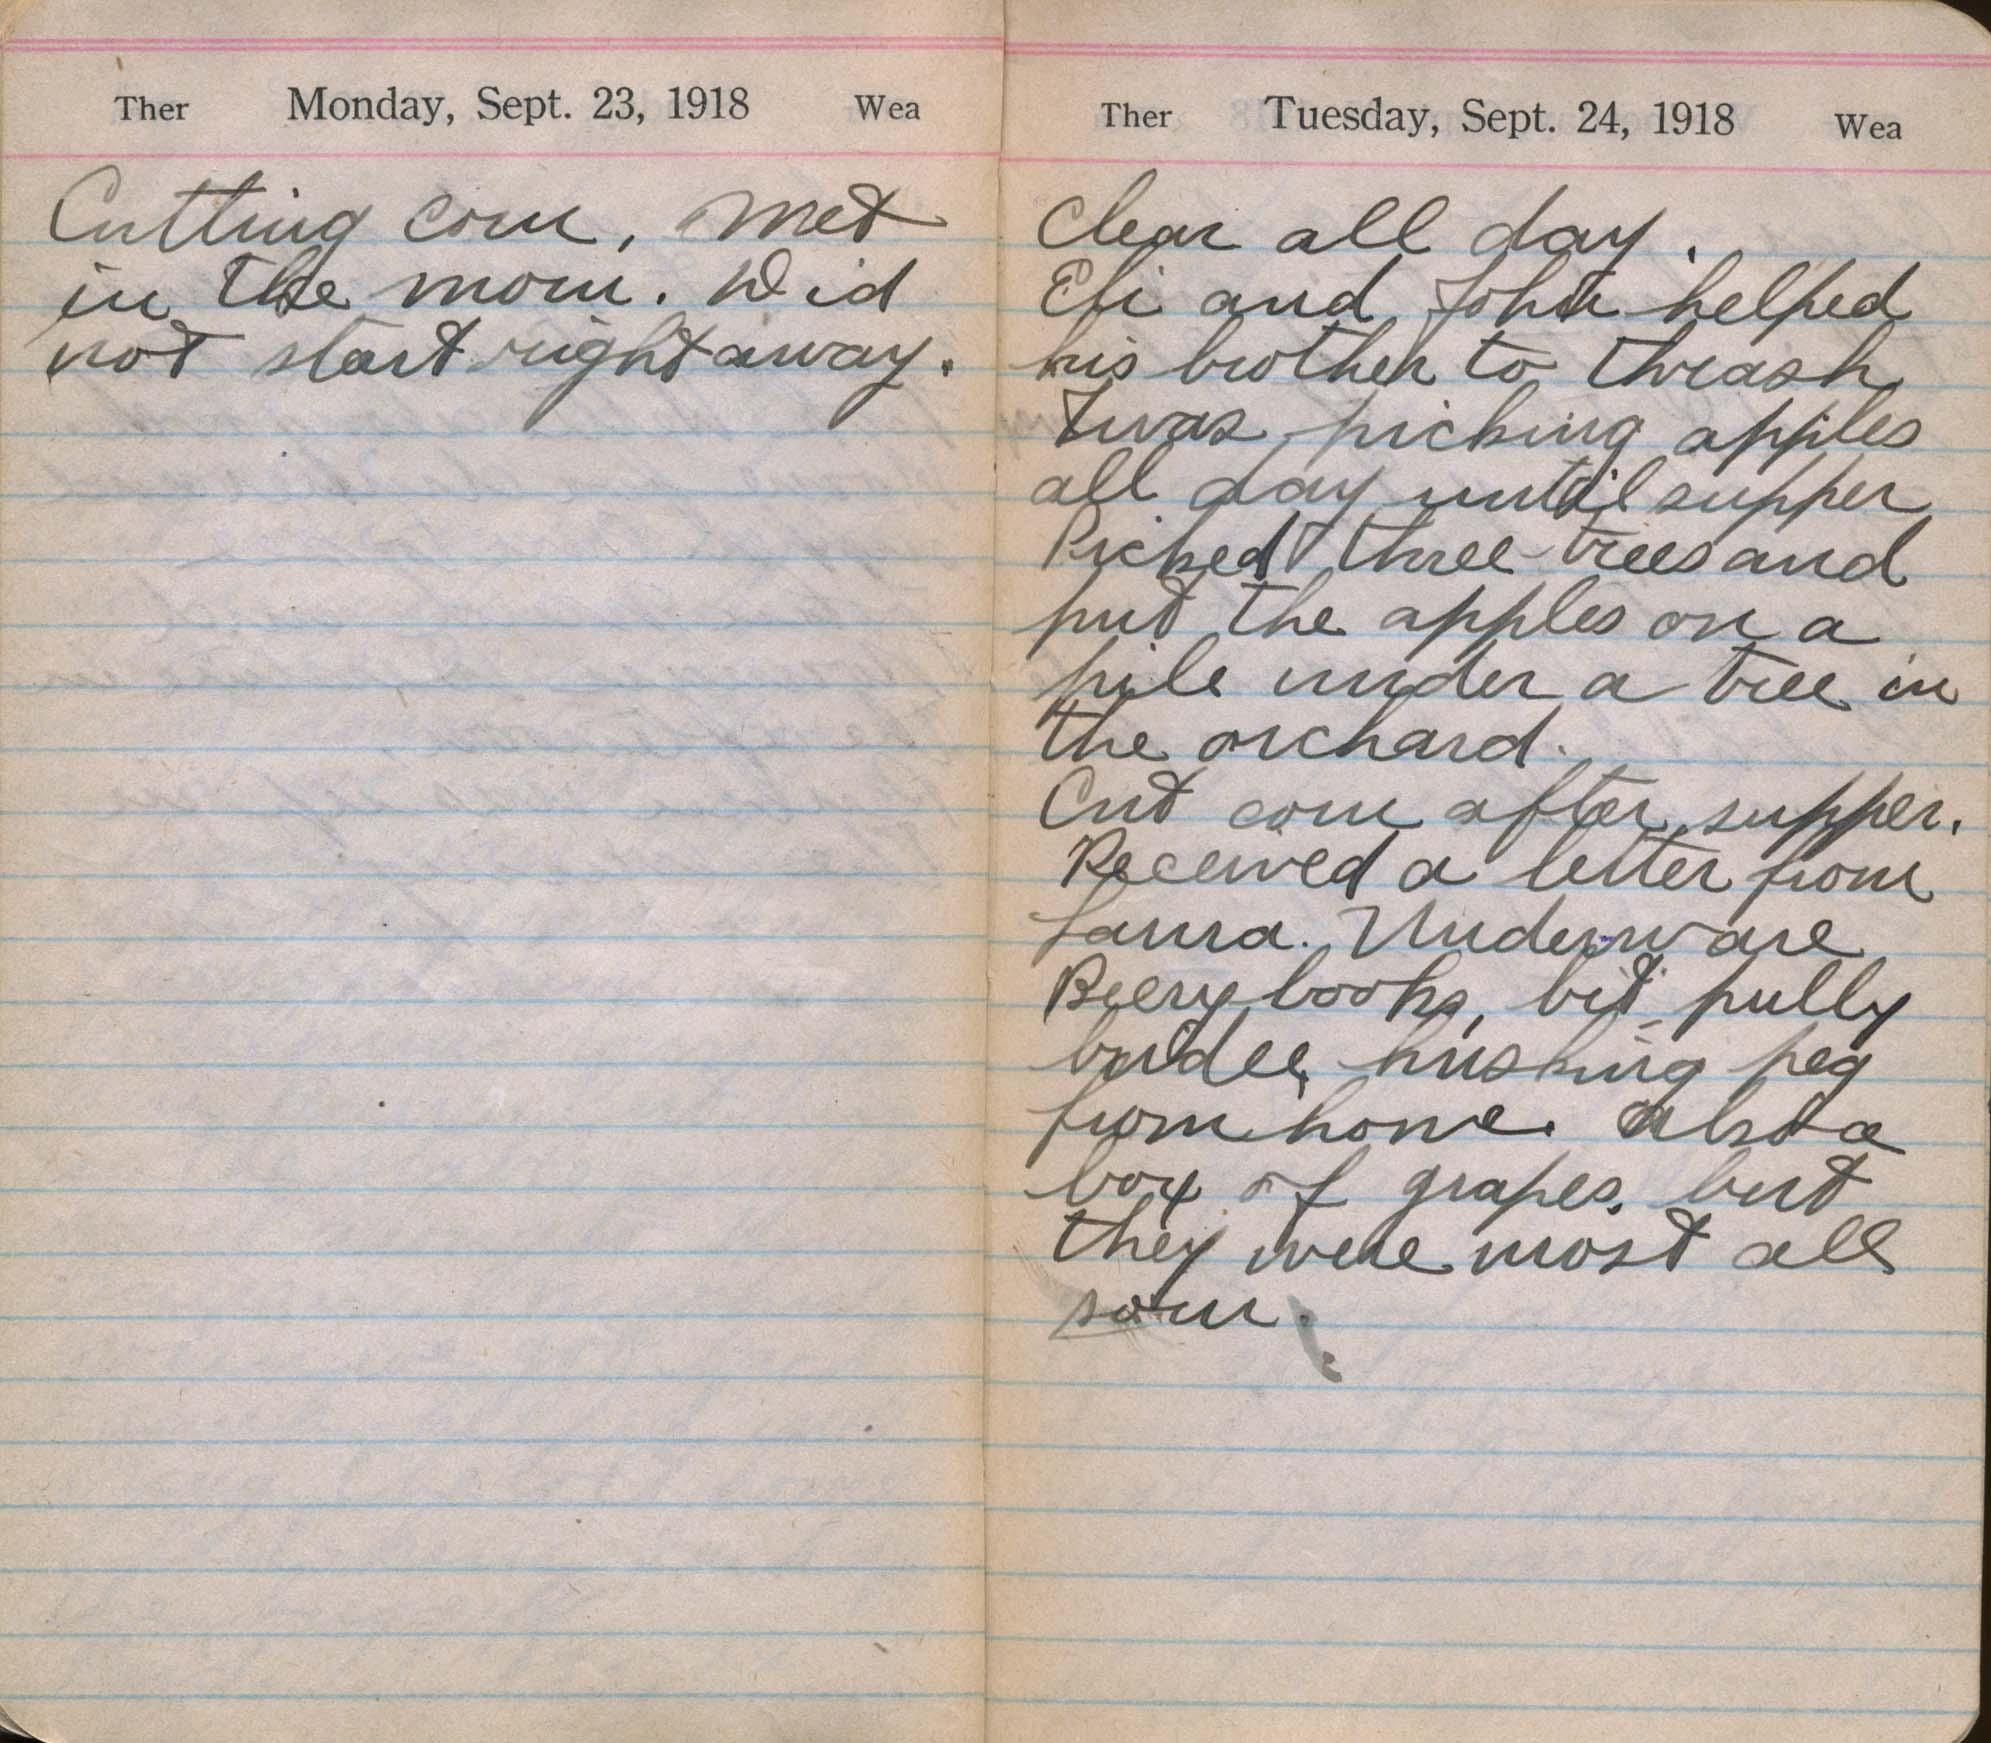 Ther Monday, Sept. 23, 1918 Wea
Cutting corn, met
in the morn. Did
not start right away.
Ther Tuesday, Sept. 24, 1918 Wea
Clear all day.
Eli and John helped
his brother to thrash
I was picking apples
all day until supper
Picked three trees and
put the apples on a
pile under a tree in
the orchard.
Cut corn after supper.
Received a letter from
Laura. Underware
books, bit pully
husking peg
from home. Also a
box of grapes, but
they were most all
sour.